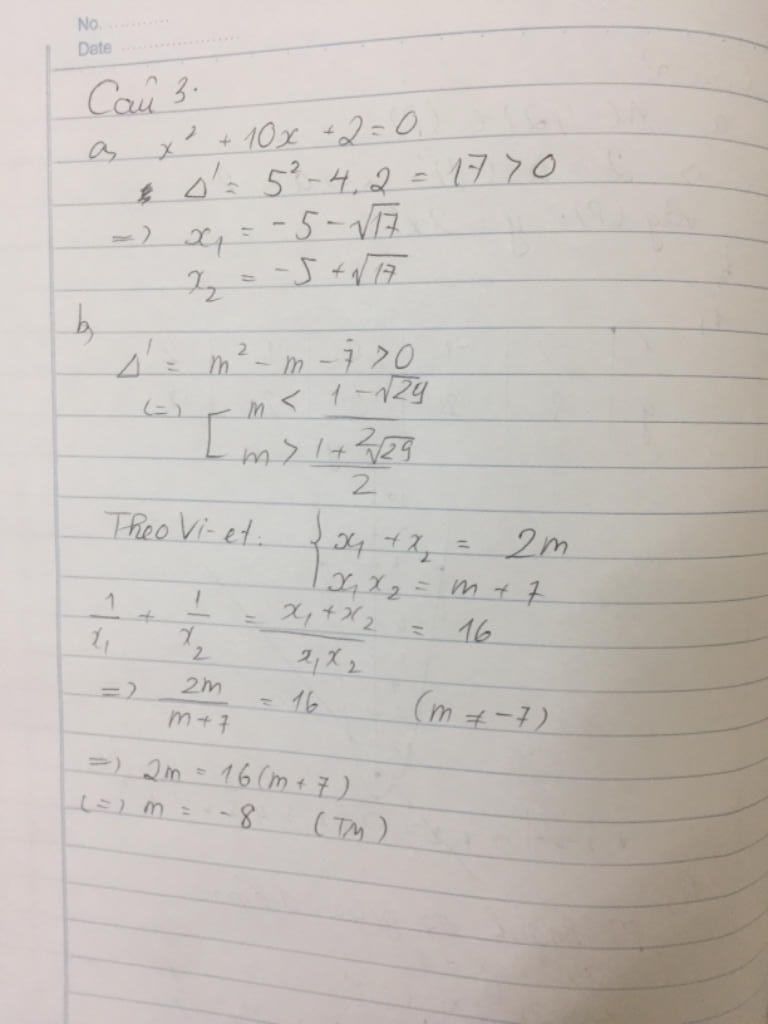 No. ............
Date ......................
Câu 3.
a, x² + 10x + 2 = 0
Δ' = 5² - 4.2 = 17 > 0
=> x₁ = -5 - √17
x₂ = -5 + √17
b,
Δ' = m² - m - 7 > 0
<=> [ m < (1 - √29)/2
m > (1 + √29)/2
Theo Vi-et: { x₁ + x₂ = 2m
x₁x₂ = m + 7
1/x₁ + 1/x₂ = (x₁ + x₂)/(x₁x₂) = 16
=> 2m/(m + 7) = 16 (m ≠ -7)
=> 2m = 16(m + 7)
<=> m = -8 (TM)